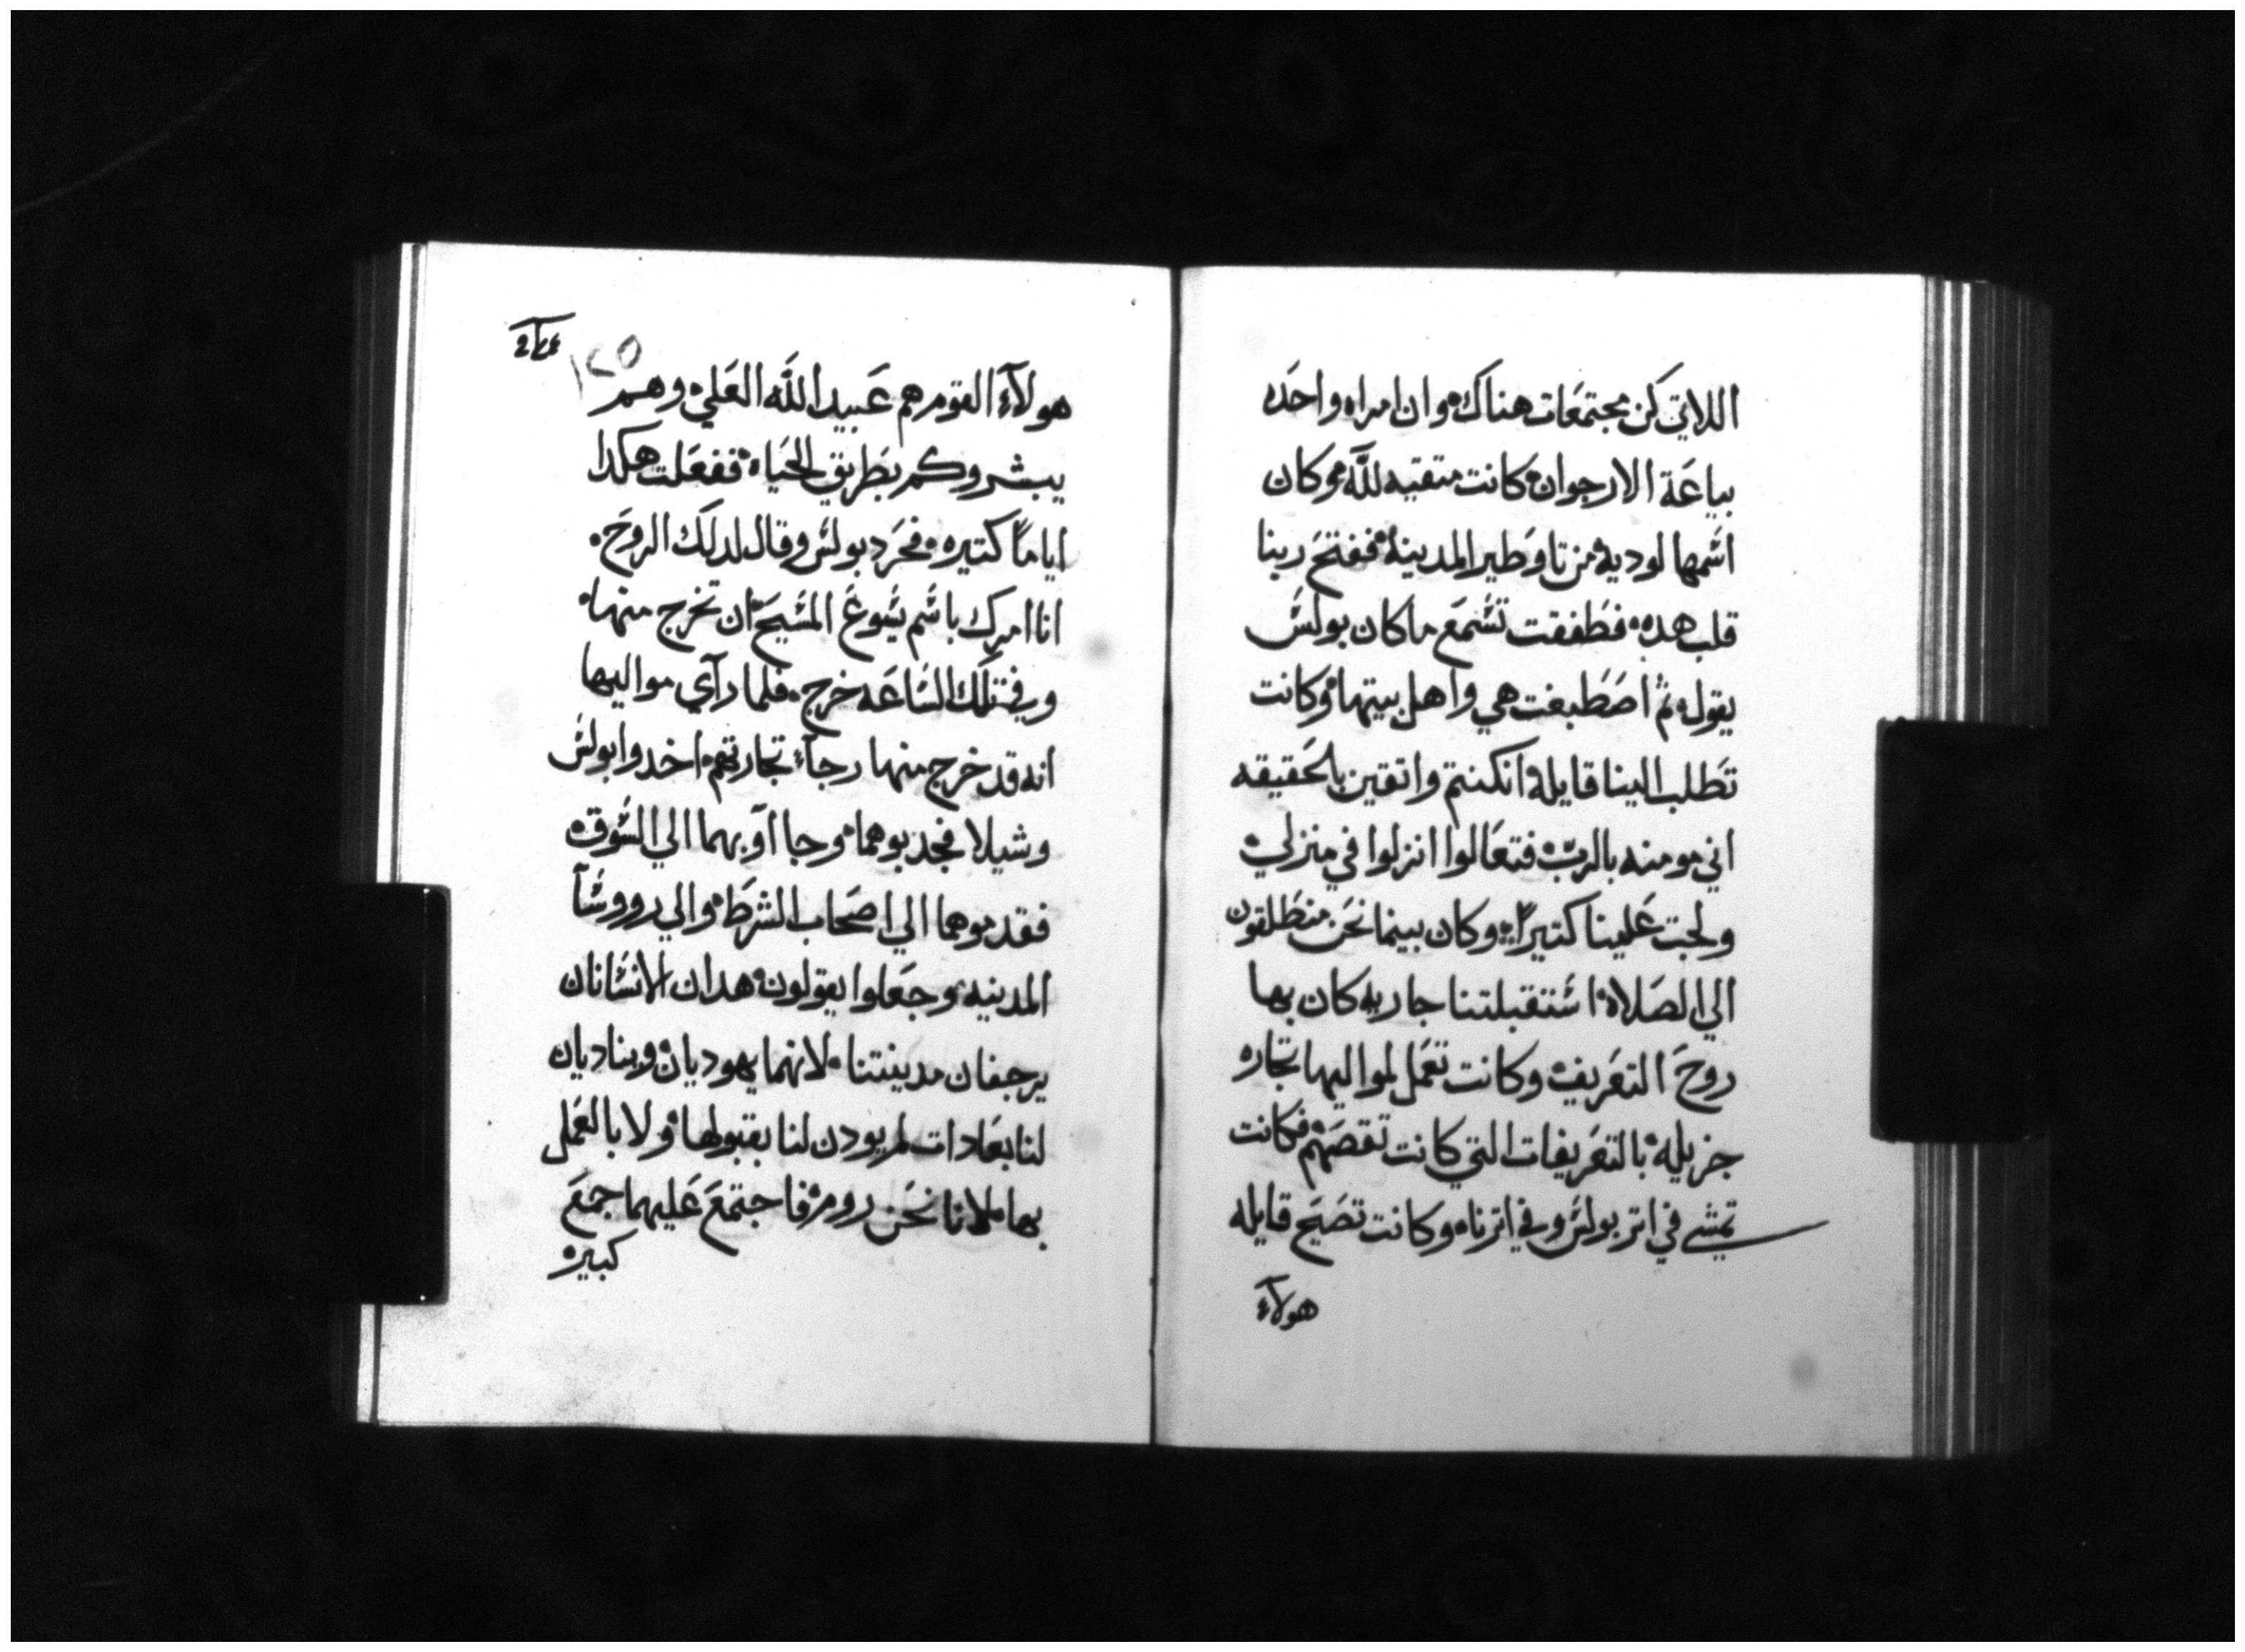 اللاتي كن مجتمعات هناك وان امراه واحده
بياعة الارجوان كانت متقيه لله وكان
اسمها لوديه من تاوطير المدينه ففتح ربنا
قلب هده فطفقت تسمع ما كان بولس
يقول ثم اصطبغت هي واهل بيتها وكانت
تطلب الينا قايله ان كنتم واتقين بالحقيقه
اني مومنه بالرب فتعالوا انزلوا في منزلي
ولجت علينا كتيرا وكان بينما نحن منطلقون
الي الصلاه استقبلتنا جاريه كان بها
روح التعريف وكانت تعمل لمواليها تجاره
جزيله بالتعريفات التي كانت تقصهم فكانت
تمشي في اتر بولس وفي اترنا وكانت تصيح قايله
هولاء
١٢٥
هولآء القوم هم عبيد الله العلي وهم
يبشروكم بطريق الحياه ففعلت هكدا
اياما كتيره فحرد بولس وقال لدلك الروح
انا امرك باسم يسوع المسيح ان تخرج منها
وفي تلك الساعه خرج فلما رآي مواليها
انه قد خرج منها رجآء تجارتهم اخدوا بولس
وشيلا فجدبوهما وجا اوبهما الي السوق
فقدموهما الي اصحاب الشرط والي رووسآ
المدينه وجعلوا يقولون هدان الانسانان
يرجفان مدينتنا لانهما يهوديان ويناديان
لنا بعادات لم يودن لنا بقبولها ولا بالعمل
بها لاننا نحن روم فاجتمع عليهما جمع
كبير